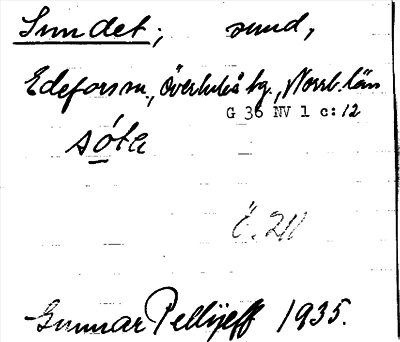 Sundet; sund,
Edeforsm., Överluleå tg., Norrb. län
G 36 NV 1 c: 12
sóta
Ö. 211
Gunnar Pellijeff 1935.